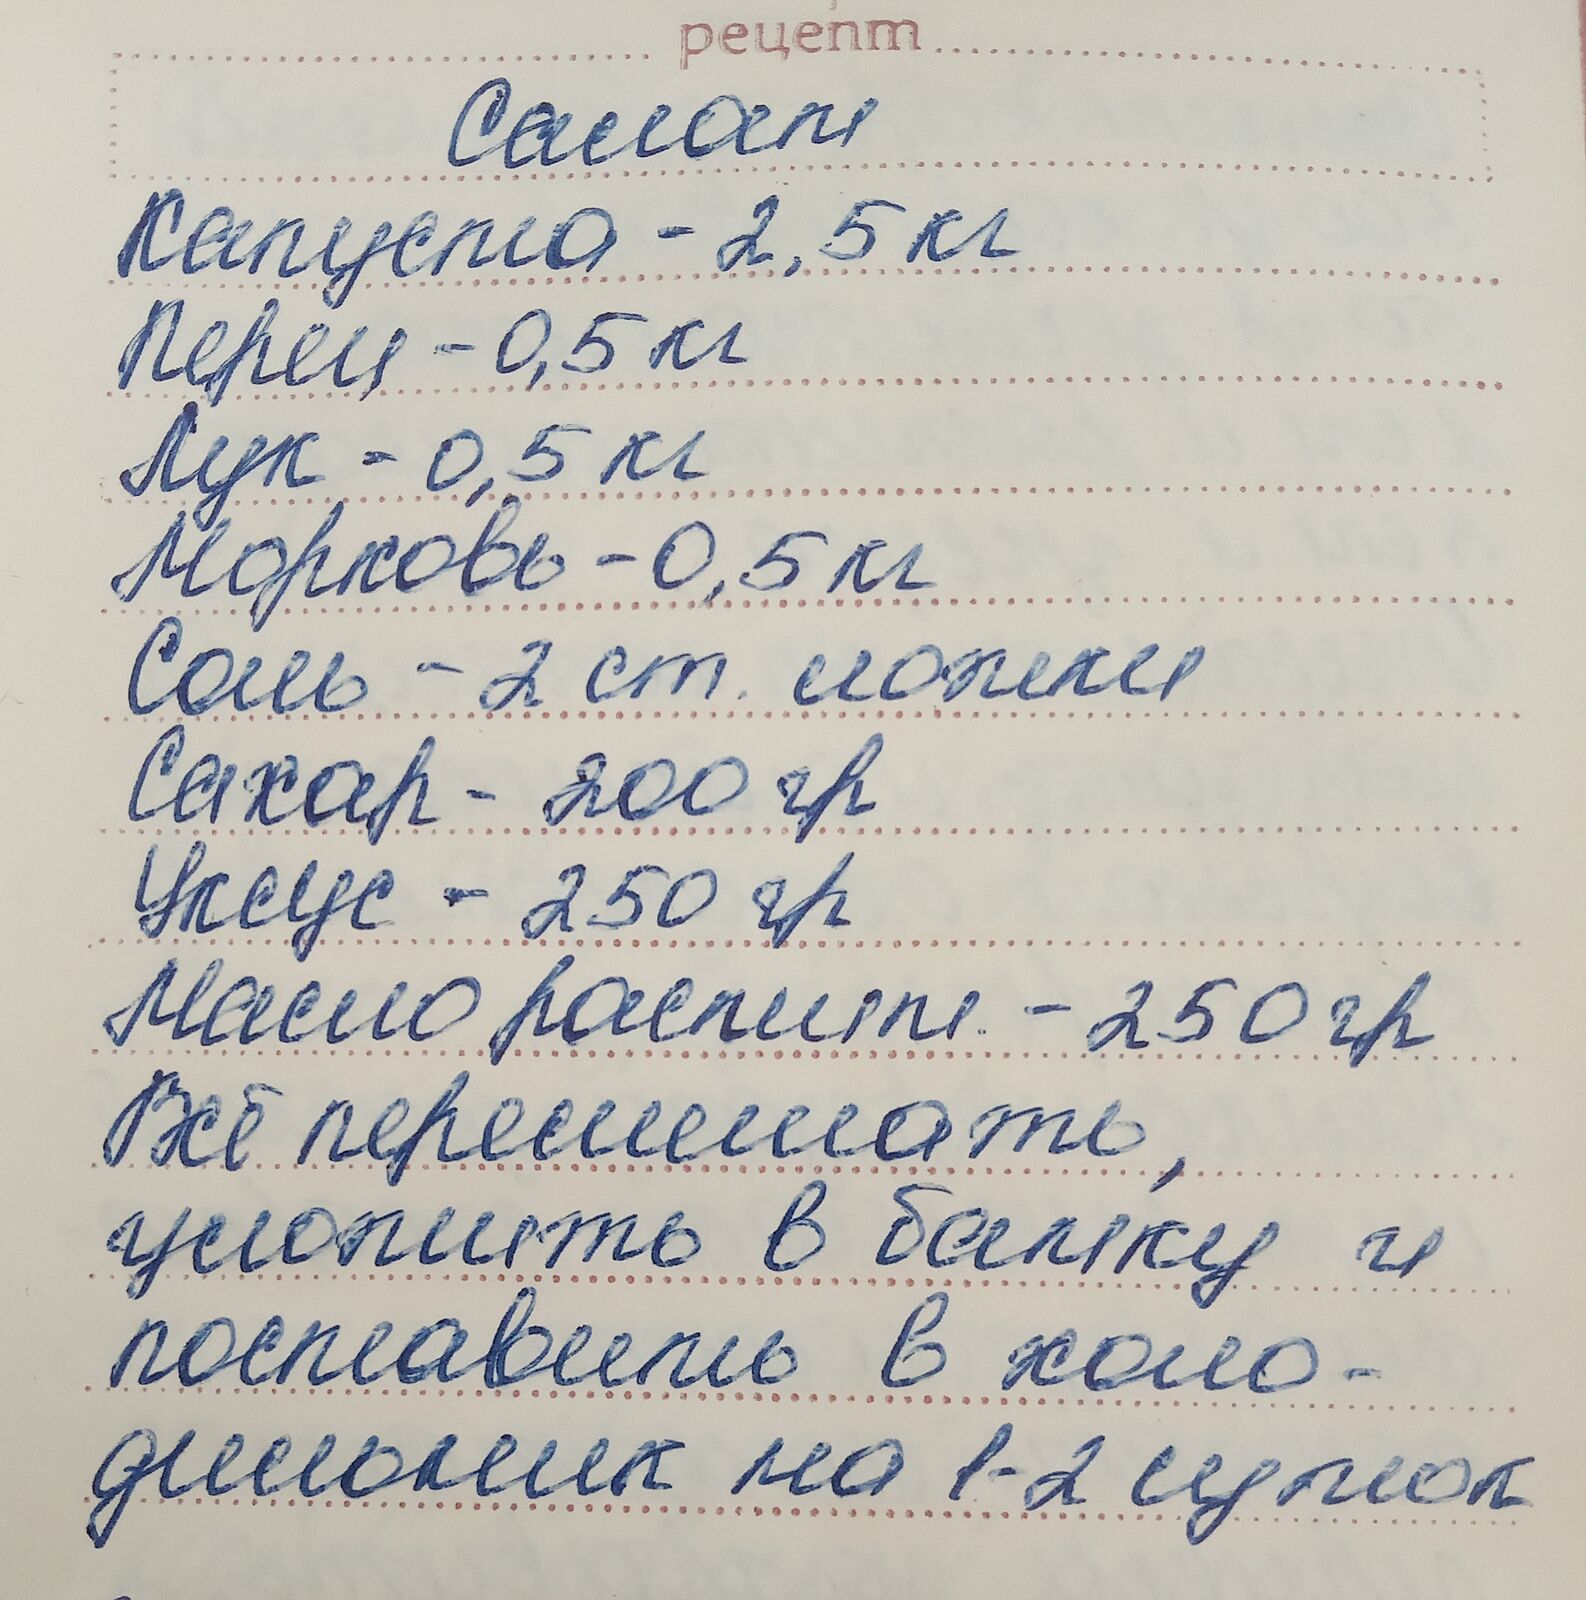 рецепт
Салат
Капуста - 2,5 кг
Перец - 0,5 кг
Лук - 0,5 кг
Морковь - 0,5 кг
Соль - 2 ст. ложки
Сахар - 200 гр
Уксус - 250 гр
Масло растит. - 250 гр
Всё перемешать,
уложить в банку и
поставить в холо-
дильник на 1-2 суток